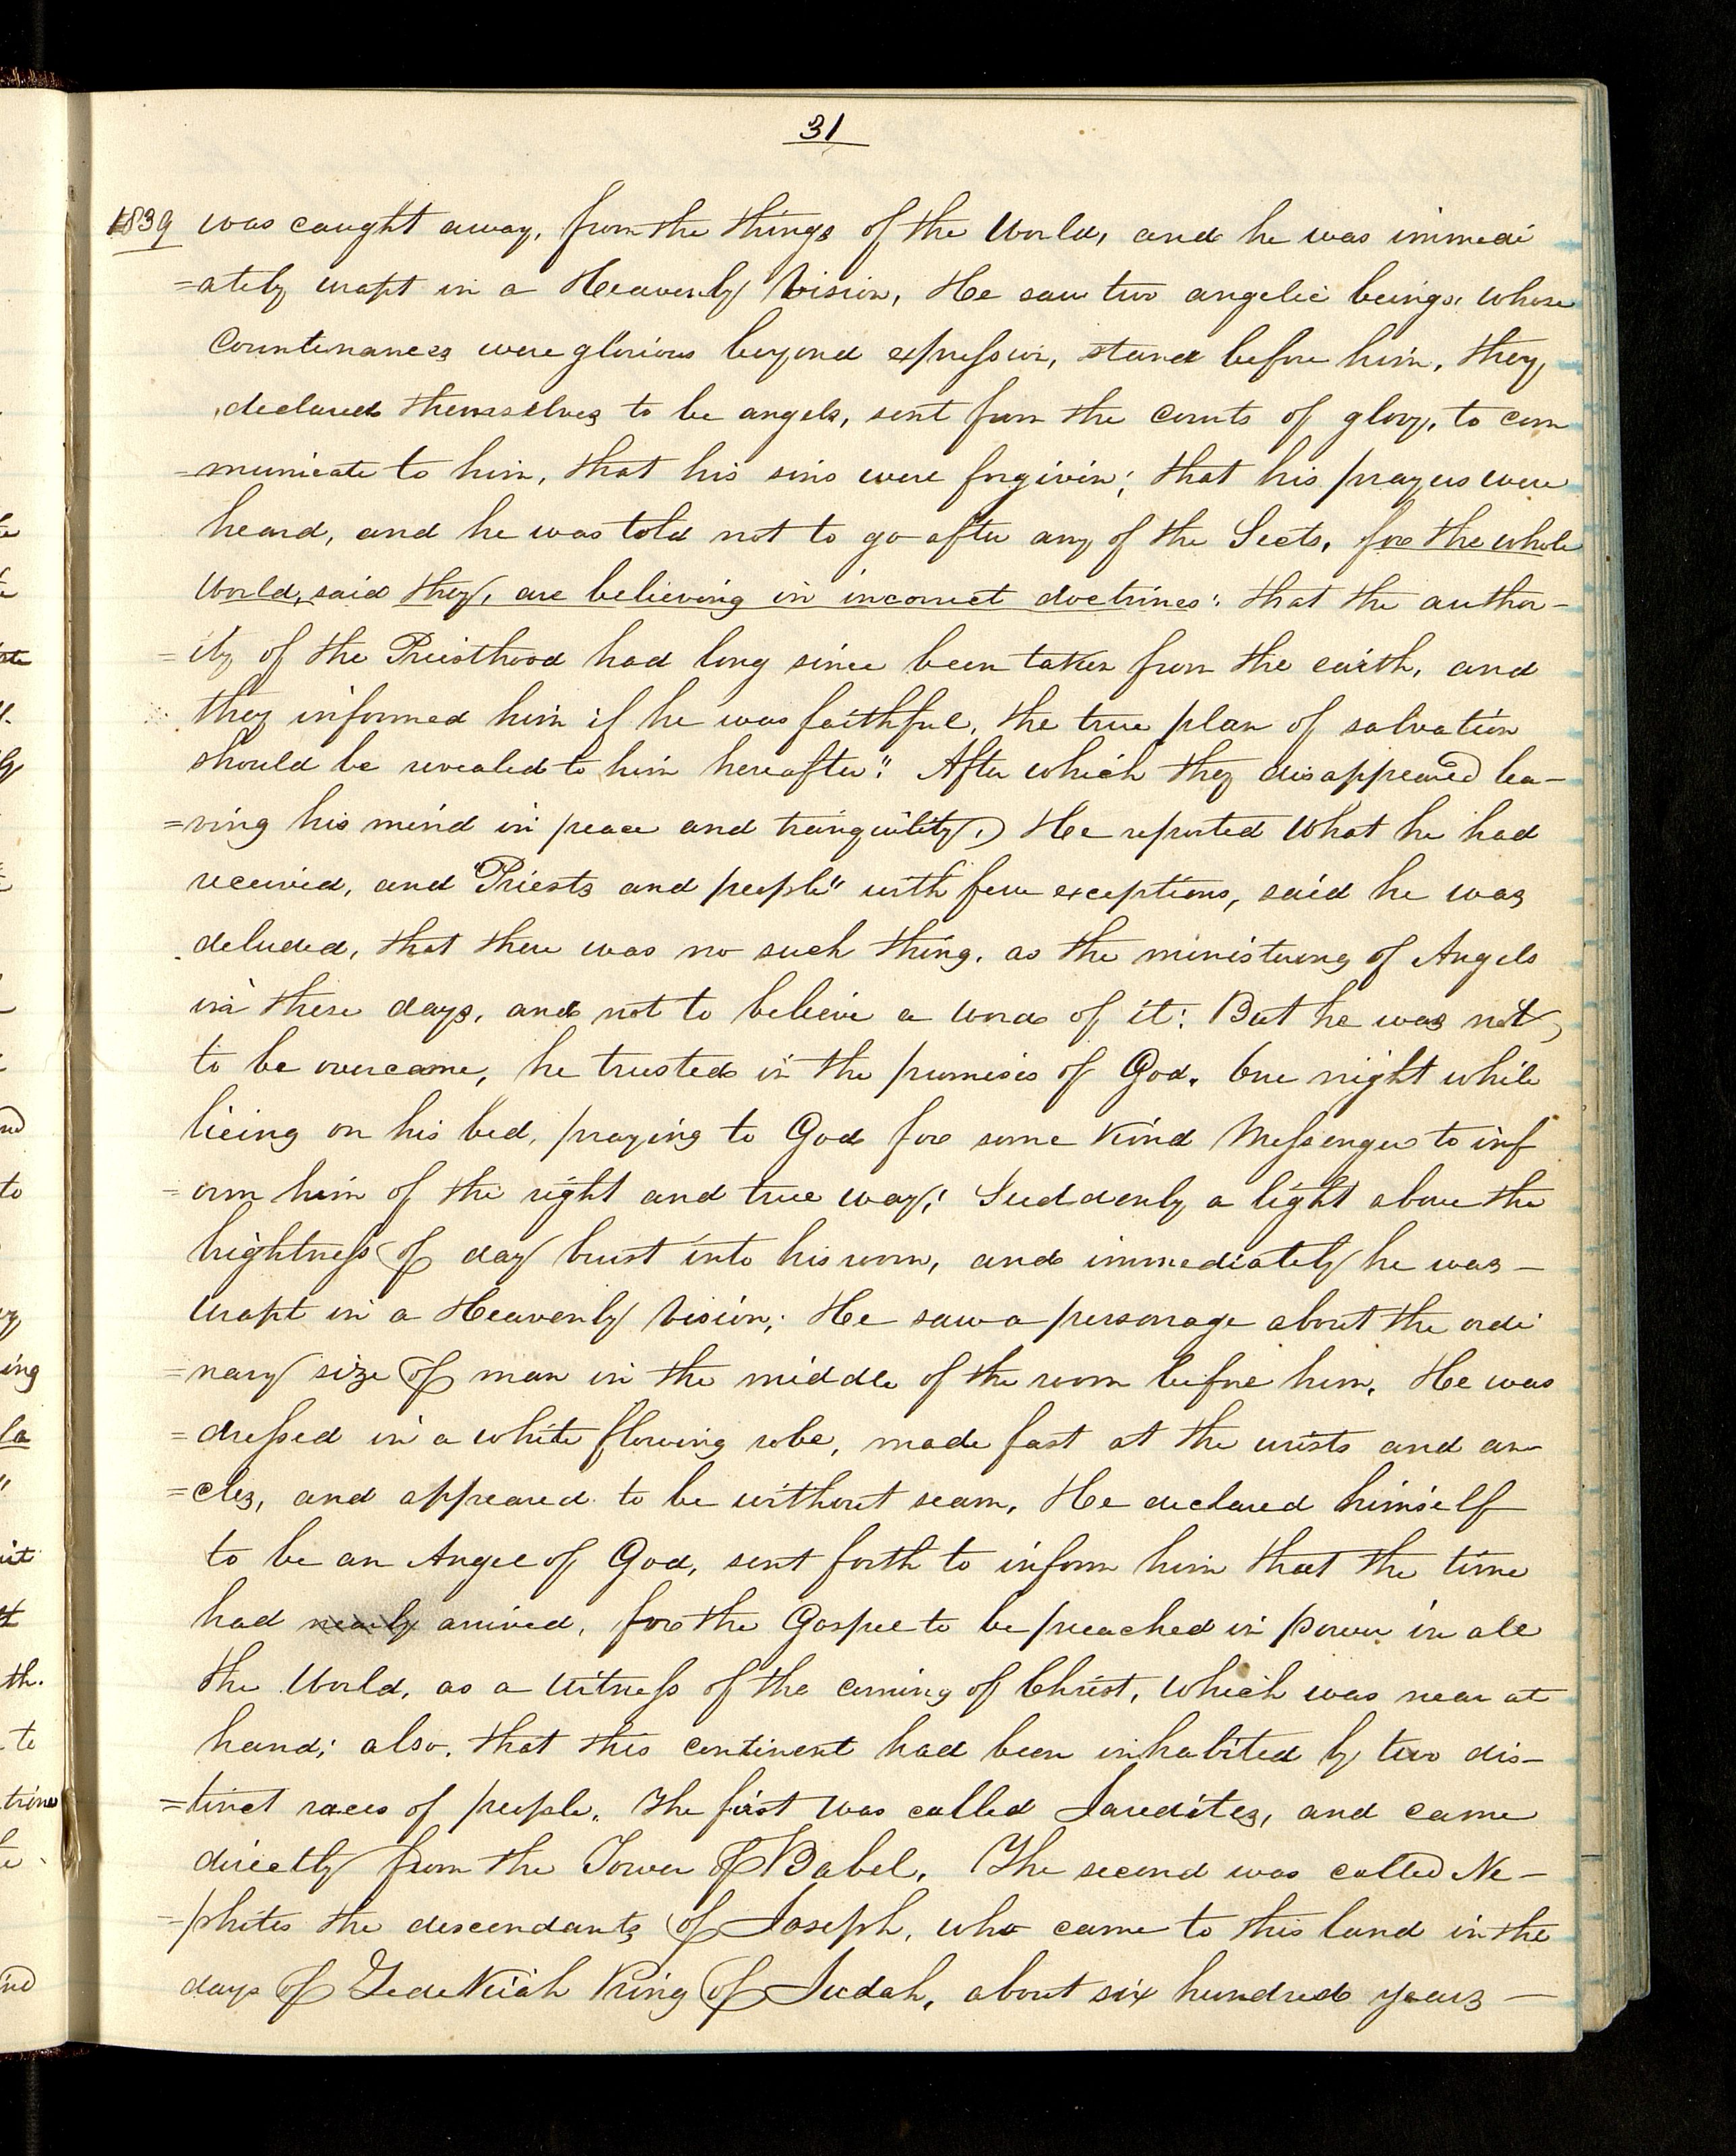 31
1839 was caught away, from the things of the World, and he was immedi
=ately wrapt in a Heavenly Vision, He saw two angelic beings, whose
Countenances were glorious beyond expression, stand before him, they,
declared themsselves to be angels, sent from the Courts of glory, to com
=municate to him, that his sins were forgivin; that his prayers were
heard, and he was told not to go after any of the Sects, for the whole
World, said they, are believing in incorrect doctrines: that the author-
=ity of the Priesthood had long since been taken from the earth, and
they informed him if he was faithful, the true plan of salvation
should be revealed to him hereafter." After which they disappeared lea-
=ving his mind in peace and tranquility,) He reported What he had
received, and "Priests and people" with few exceptions, said he was
deluded, that there was no such thing, as the ministering of Angels
in these days, and not to believe a word of it: But he was not,
to be overcome, he trusted in the promises of God. One night while
lieing on his bed, praying to God for some kind Messenger to inf
=orm him of the right and true way; Suddenly a light above the
brightness of day burst into his room, and immediately he was-
wrapt in a Heavenly Vision; He saw a personage about the ordi
=nary size of man in the middle of the room before him, He was
=dressed in a white flowing robe, made fast at the wrists and an-
=cles, and appeared to be without seam, He declared himself
to be an Angel of God, sent forth to inform him that the time
had nearly arrived, for the Gospel to be preached in power in all
the World, as a Witness of the coming of Christ, Which was near at
hand; also, that this continent had been inhabited by two dis-
=tinct races of people. The first was called Jaredites, and came
directly from the Tower of Babel, The second was called Ne-
=phites the descendants of Joseph, who came to this land in the
days of Zedekiah King of Judah, about six hundred years-